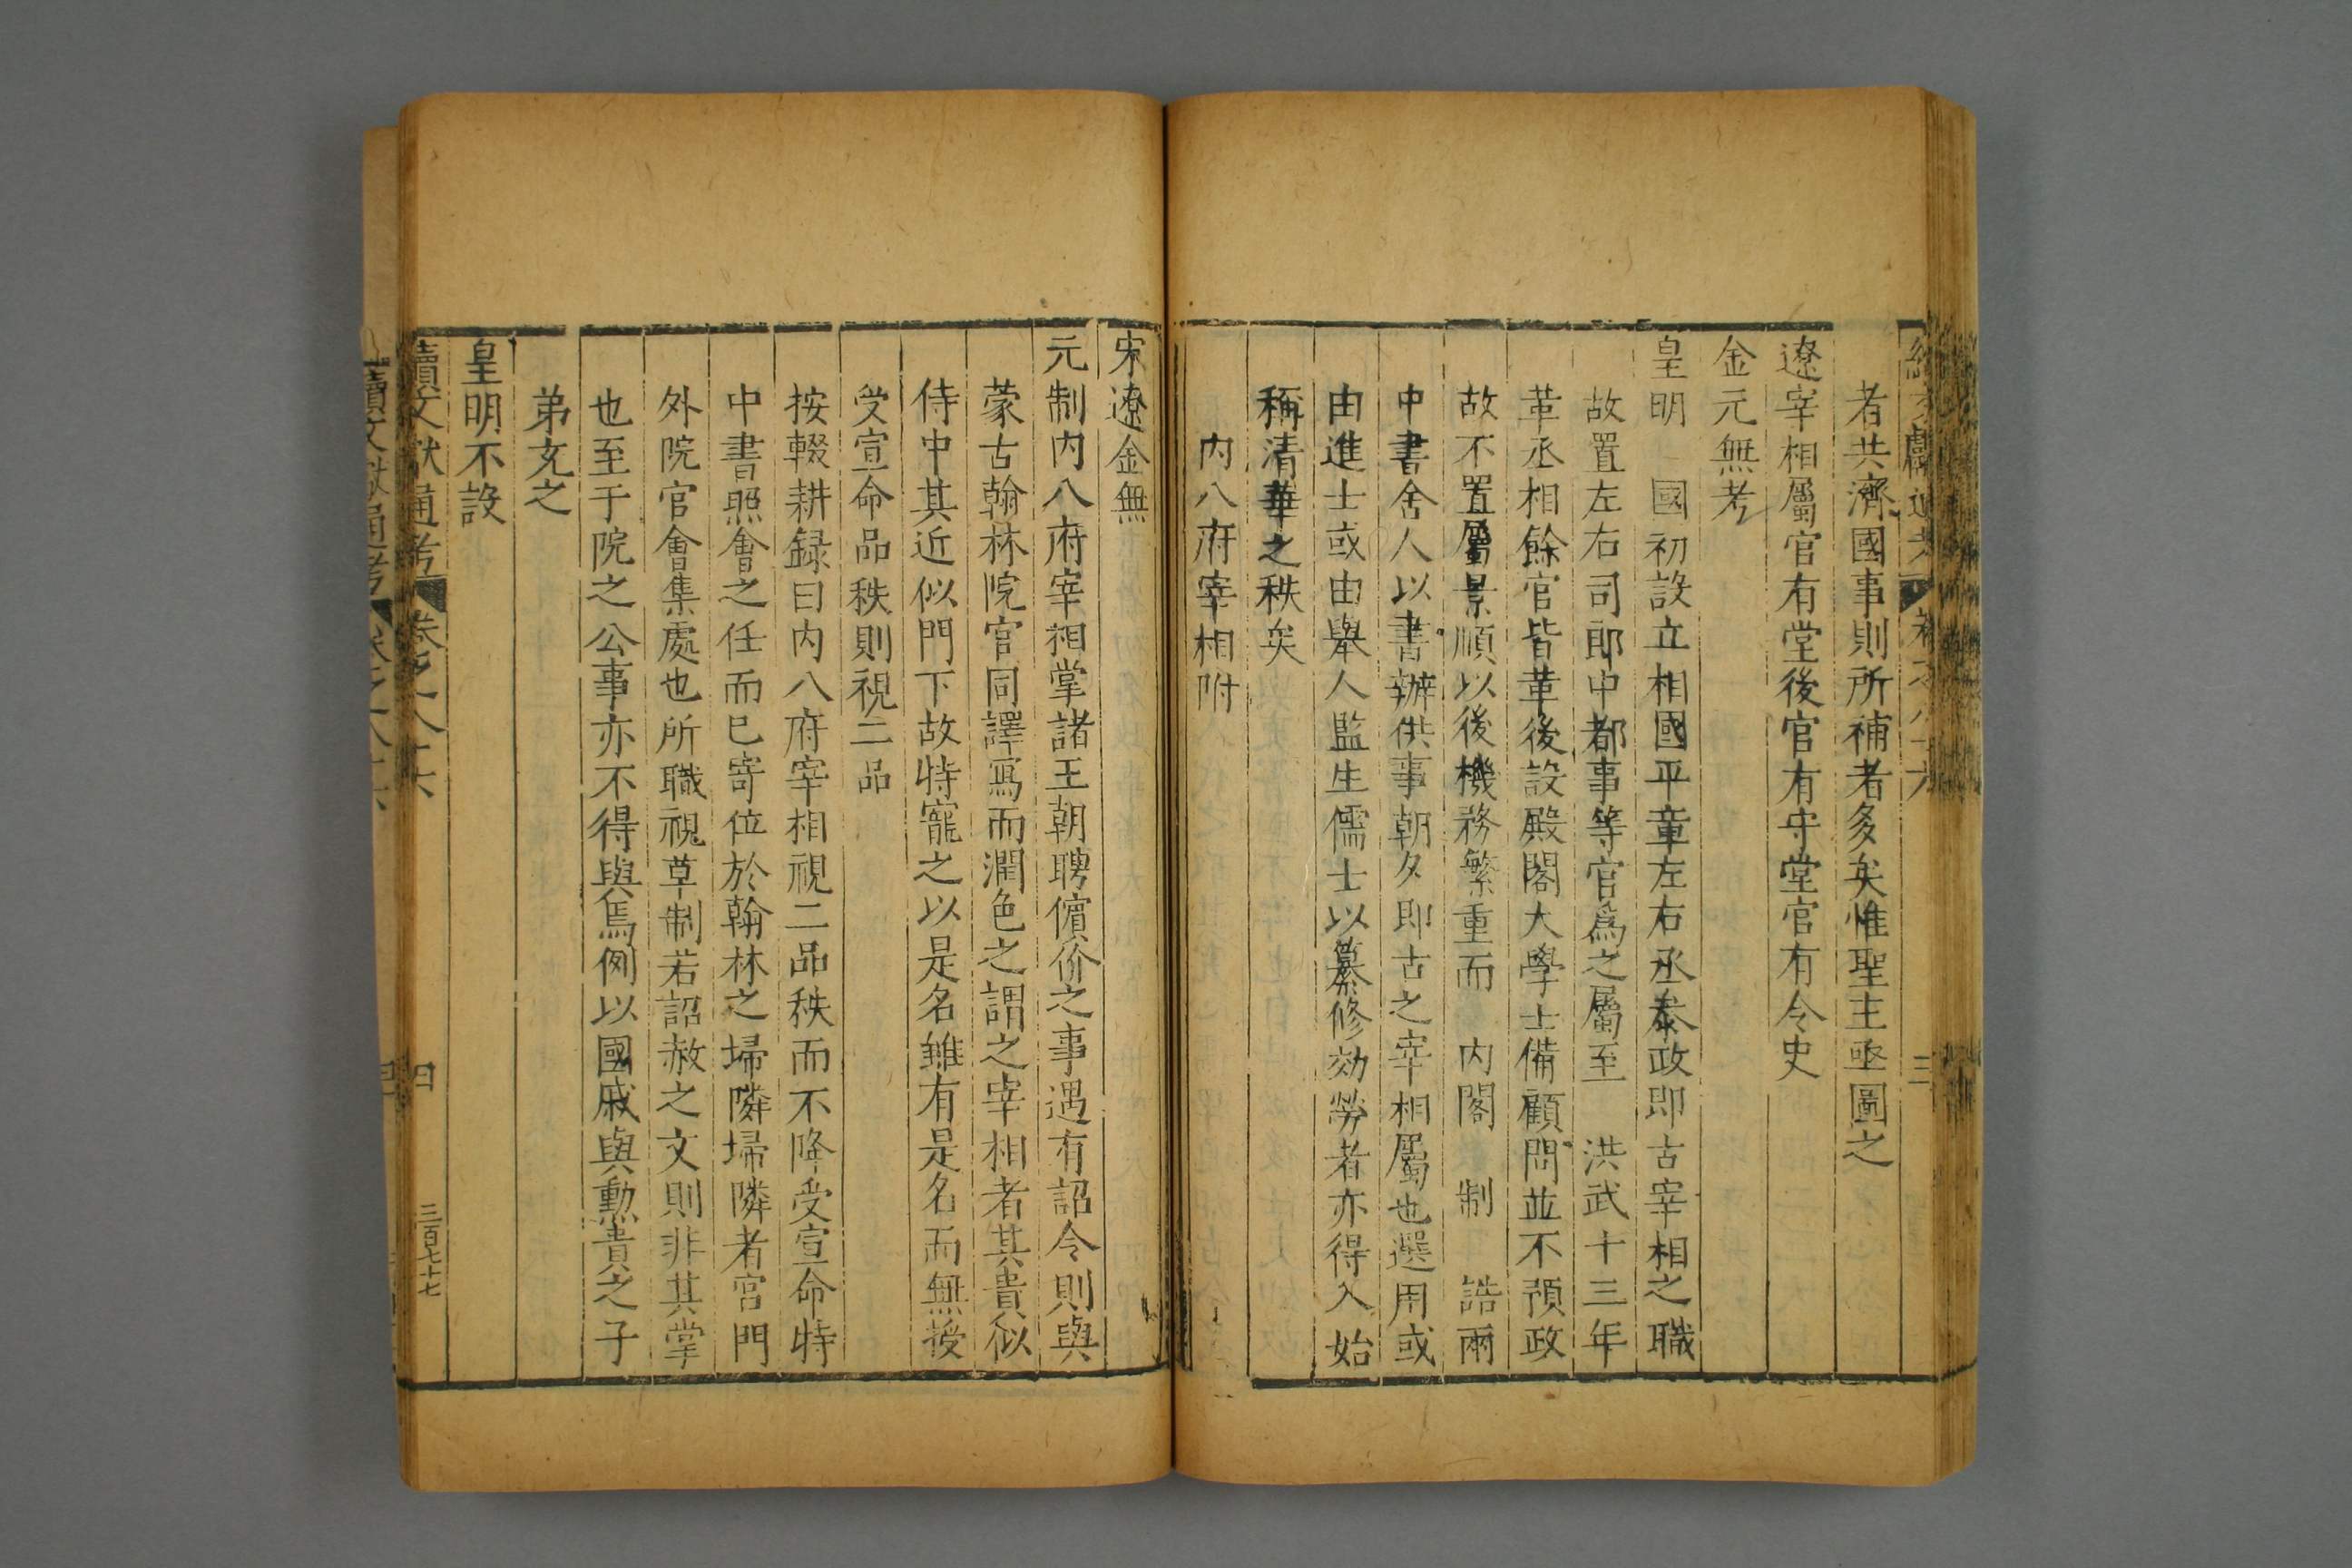 者共濟國事則所補者多矣惟聖主亟圖之
遼宰相屬官有堂後官有守堂官有令史
金元無考
皇明　國初設立相國平章左右丞叅政即古宰相之職
故置左右司郎中都事等官爲之屬至　洪武十三年
革丞相餘官皆革後設殿閣大學士備顧問並不預政
故不置屬景順以後機務繁重而　內閣　制　誥兩
中書舍人以書辦供事朝夕即古之宰相屬也選用或
由進士或由舉人監生儒士以纂修効勞者亦得入始
稱清華之秩矣
內八府宰相附
宋遼金無
元制內八府宰相掌諸王朝聘儐价之事遇有詔令則與
蒙古翰林院官同譯寫而潤色之謂之宰相者其貴似
侍中其近似門下故特寵之以是名雖有是名而無授
受宣命品秩則視二品
按輟耕録曰內八府宰相視二品秩而不降受宣命特
中書照會之任而已寄位於翰林之埽隣埽隣者宮門
外院官會集處也所職視草制若詔赦之文則非其掌
也至于院之公事亦不得與焉例以國戚與勳貴之子
弟充之
皇明不設
續文獻通考　卷之八十六　四　三百七十七